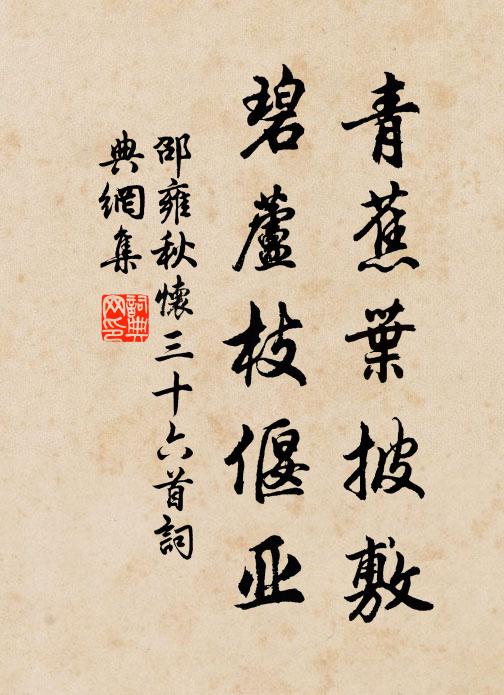 青蕉葉披敷
碧蘆枝偃亚
邵雍秋懷三十六首詞
典網集
詞典
网印